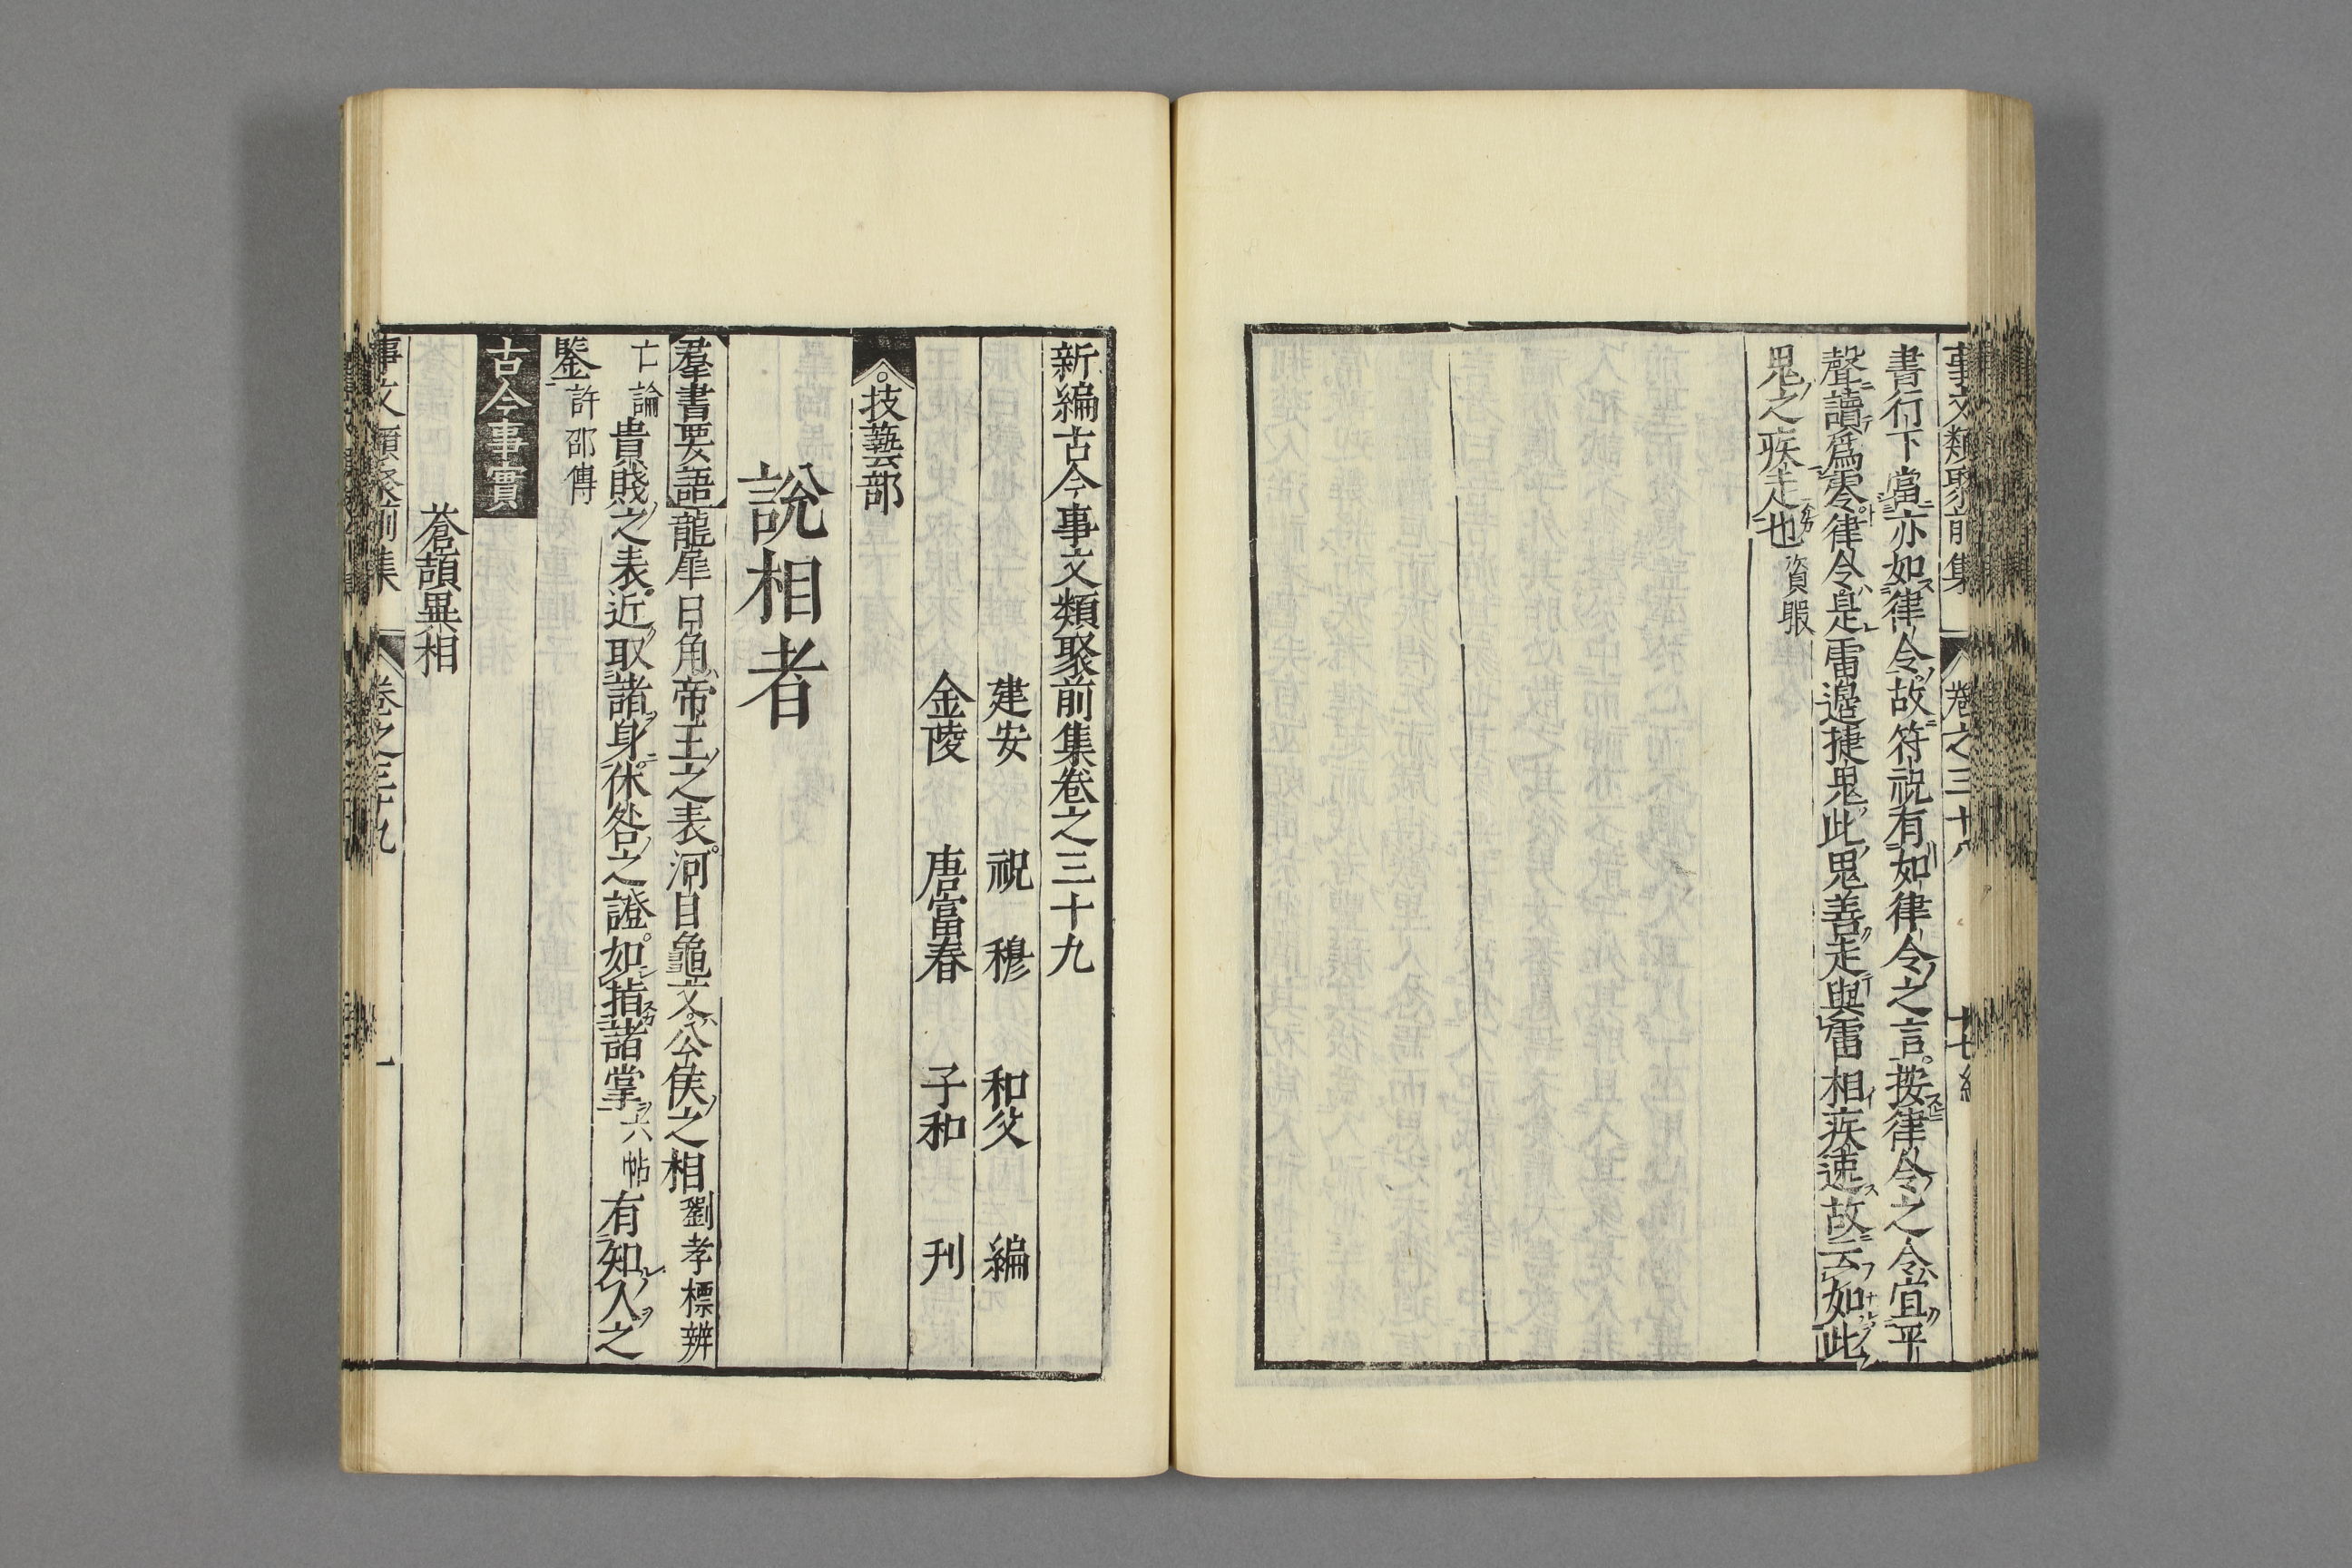 事文類聚前集 卷之三十八
書行下當亦如律令故符祝有如律令之言按律令之令宜平
聲讀爲零律令是雷邊捷鬼此鬼善走與雷相疾速故云如此
鬼之疾走也資暇
新編古今事文類聚前集卷之三十九
建安 祝 穆 和父 編
金陵 唐富春 子和 刊
技藝部
說相者
羣書要語龍犀日角帝王之表河目龜文公侯之相劉孝標辨
亡論貴賤之表近取諸身休咎之證如指諸掌六帖有知人之
鑒許邵傳
古今事實
蒼頡異相
事文類聚前集 卷之三十九 一